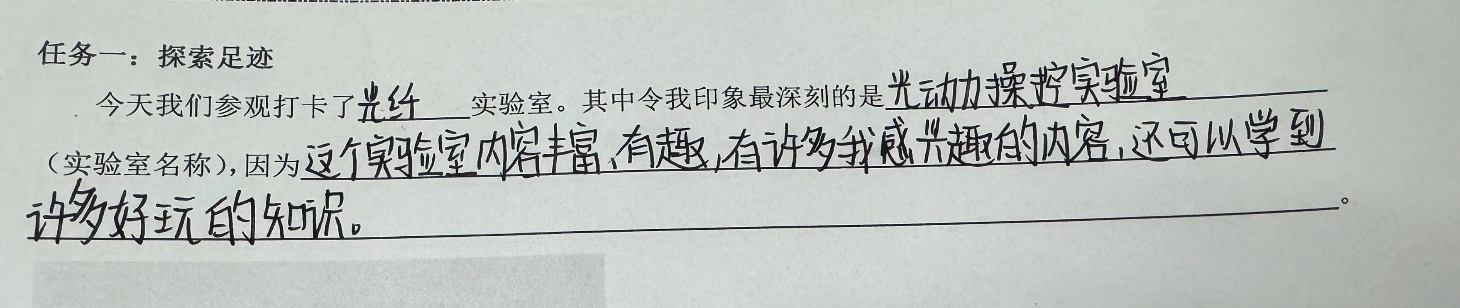 任务一：探索足迹
今天我们参观打卡了光纤实验室。其中令我印象最深刻的是光动力操控实验室
（实验室名称），因为这个实验室内容丰富、有趣，有许多我感兴趣的内容，还可以学到
许多好玩的知识。。